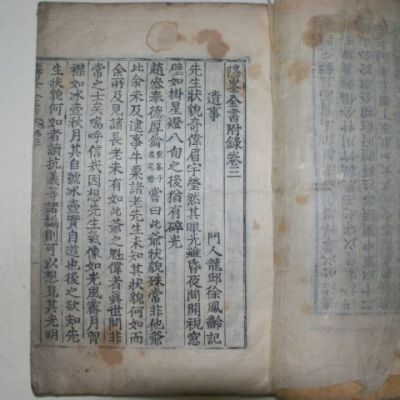 隱峯全書附錄卷三
遺事
門人龍邱徐鳳齡記
先生狀貌奇偉眉宇瑩然其眼光雖昏夜間開視窓
壁如掛星燈八旬之後猶有碎光
趙參奉德厚翁重峯子名完堵嘗曰此爺狀貌殊常非他爺
比余未及逮事牛栗諸老先生未知其狀貌何如而
余所及見諸長老未有如此爺之魁偉者眞世間非
常之士矣噫呼信哉因想先生氣像如光風霽月曾
襟如冰壺秋月其自號冰壺實自道也後之欲知先
生狀貌何如者讀抗義等諸編則可以想見其光明